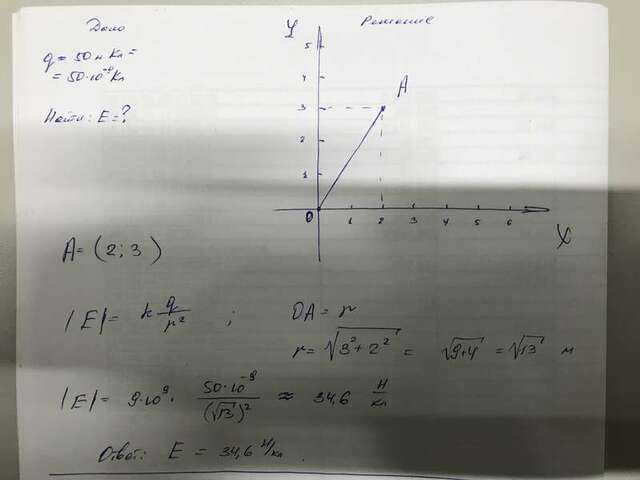 Дано
q = 50 н Кл =
= 50·10⁻⁹ Кл
Найти: E = ?
Решение
Y
5
4
3
2
1
0
1 2 3 4 5 6
X
A
A = (2; 3)
|E| = k q/r² ; OA = r
r = √(3² + 2²) = √(9+4) = √13 м
|E| = 9·10⁹ · 50·10⁻⁹/(√13)² ≈ 34,6 Н/Кл
Ответ: E = 34,6 Н/Кл.